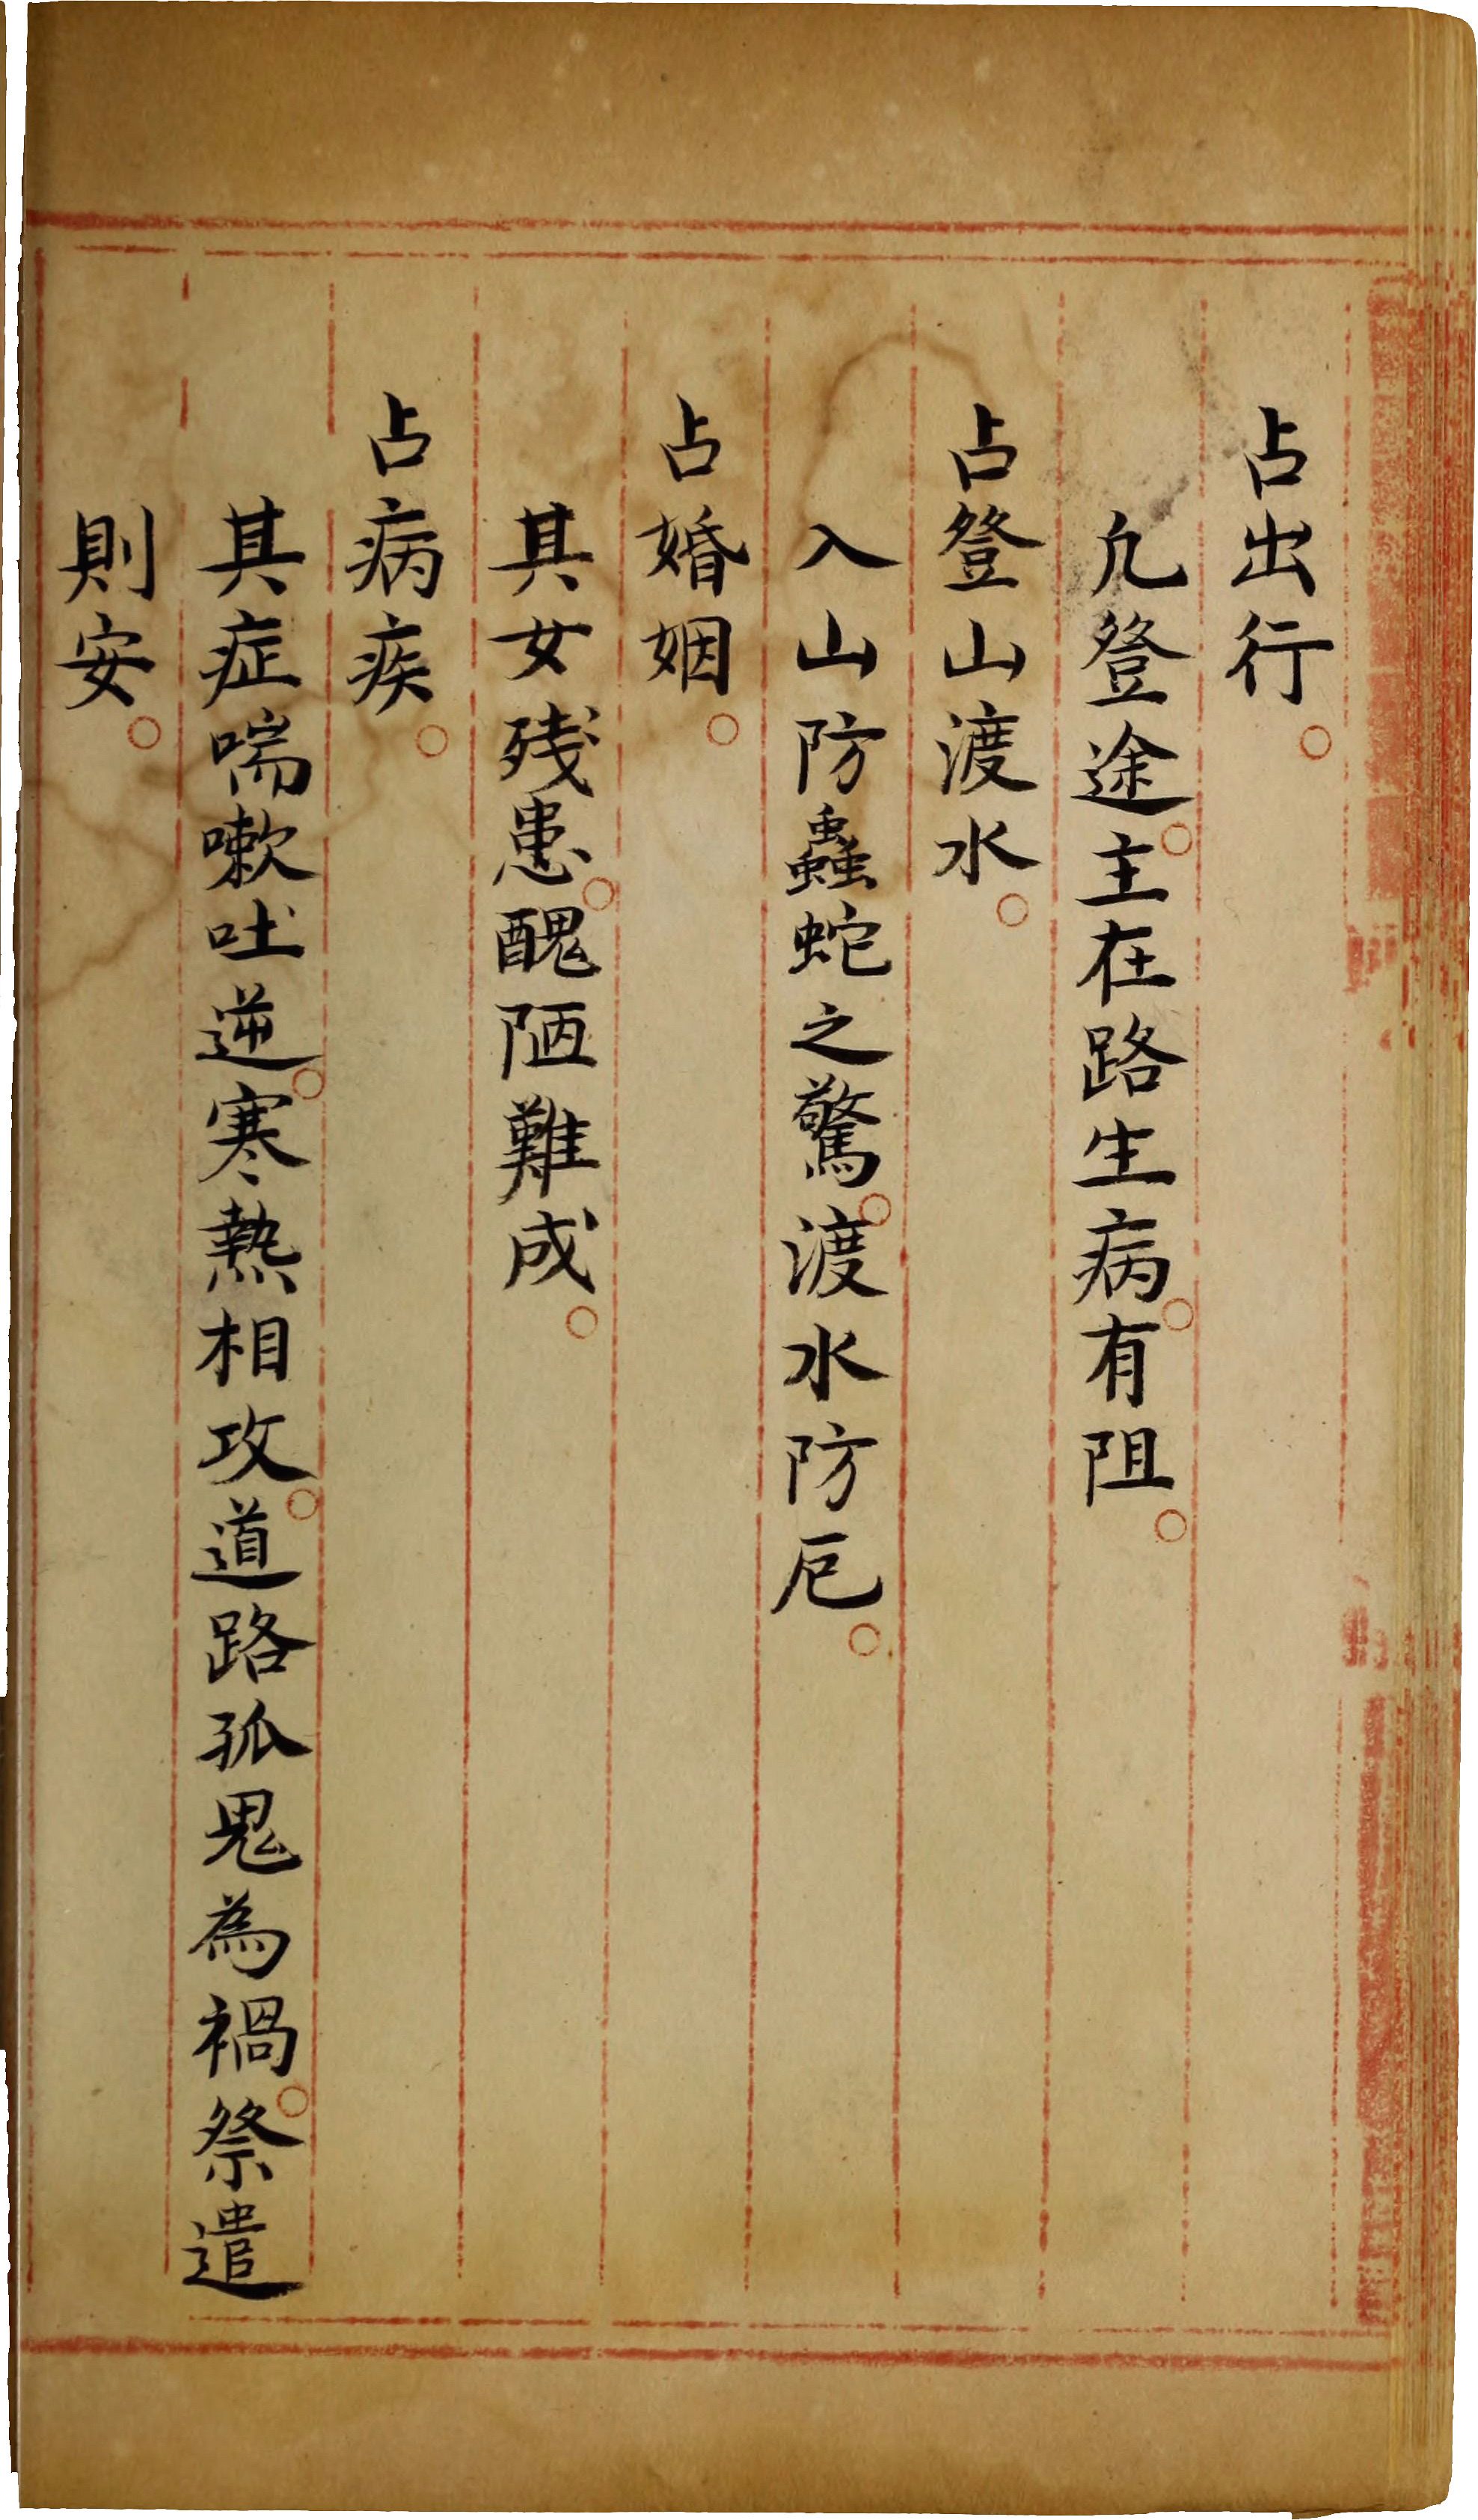 占出行。
凡登途。主在路生病。有阻。
占登山渡水。
入山防蟲蛇之驚。渡水防厄。
占婚姻。
其女残患。醜陋難成。
占病疾。
其症喘嗽吐逆。寒熱相攻。道路孤鬼為禍。祭遣
則安。